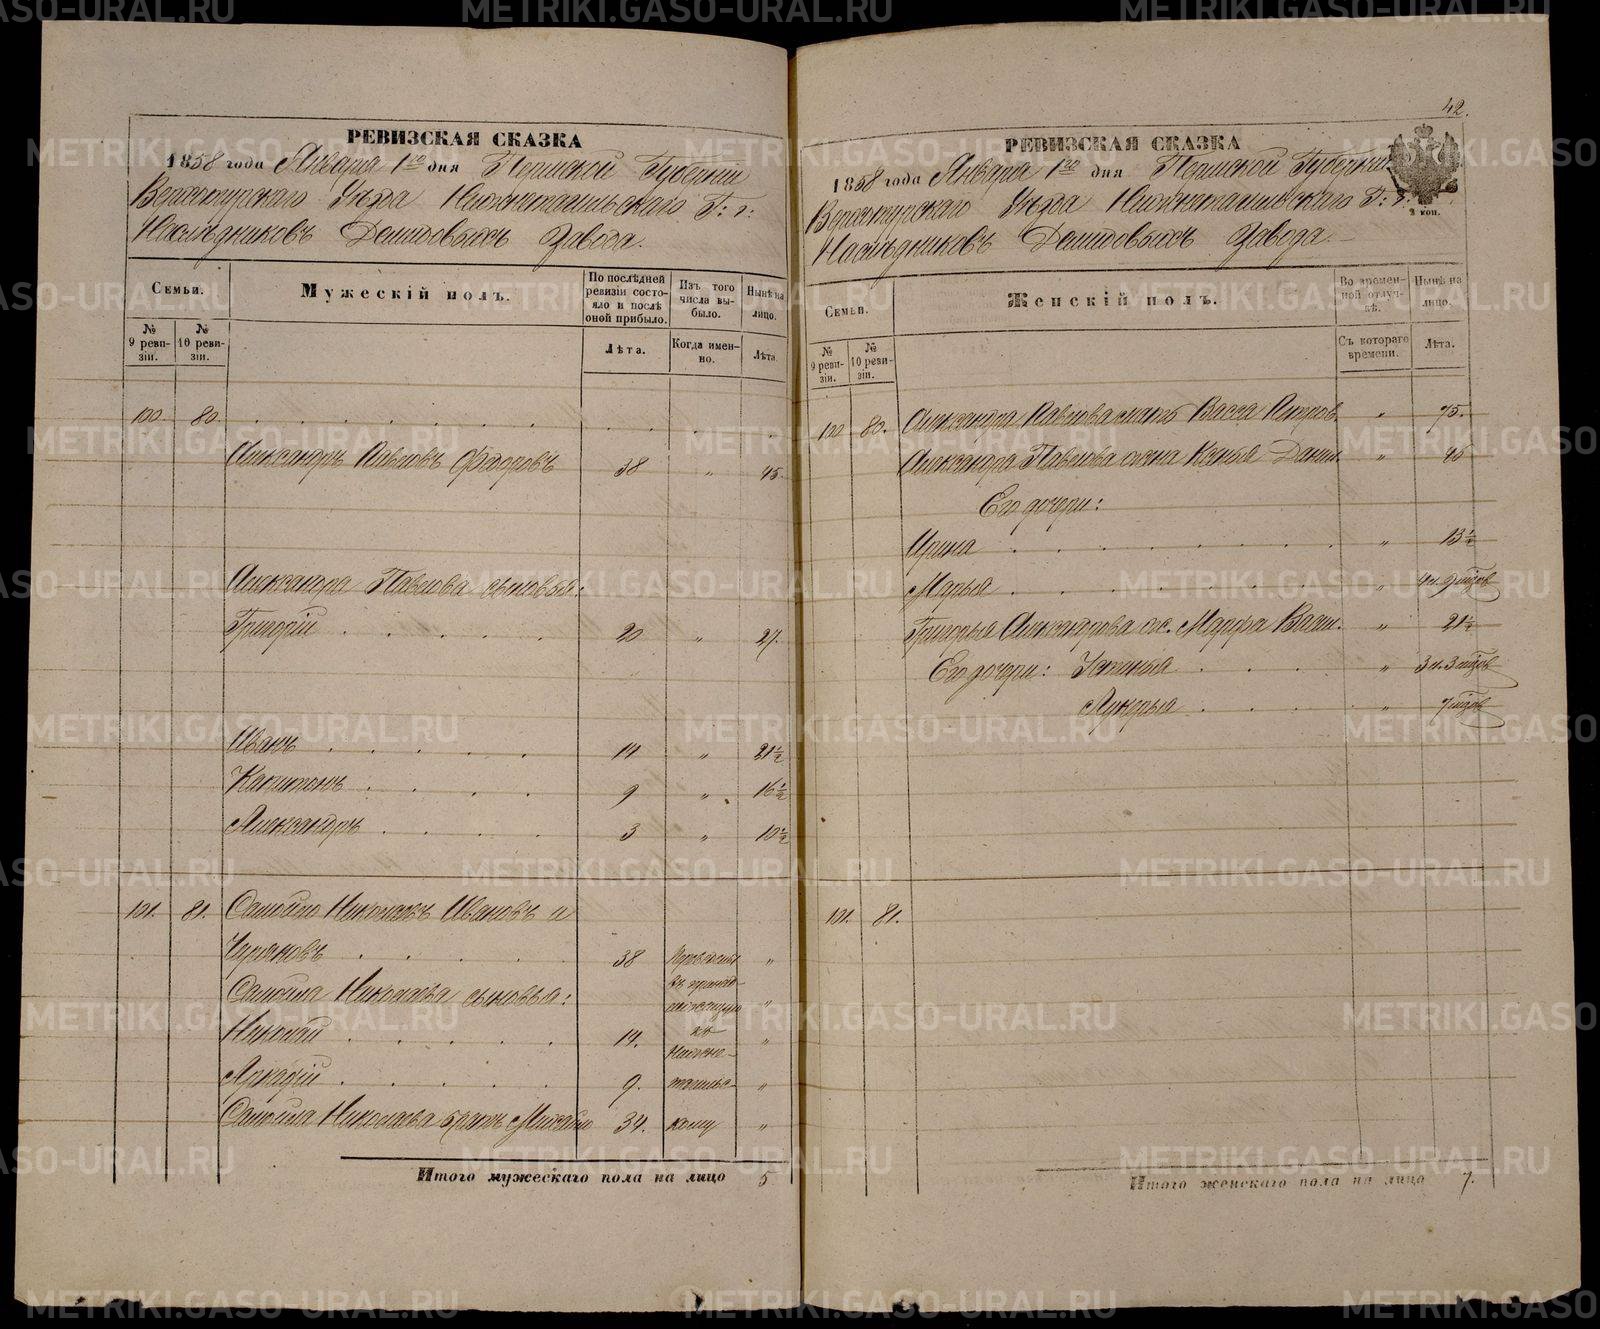 42.
РЕВИЗСКАЯ СКАЗКА
1858 года Января 1го дня Пермской Губернии
Верхотурскаго Уѣзда Нижнетагильскаго Г: г:
Наслѣдниковъ Демидовыхъ Завода.
Семьи.
Мужескій полъ.
По послѣдней ревизіи состояло и послѣ оной прибыло.
Изъ того числа выбыло.
Нынѣ на лицо.
№ 9 ревизіи.
№ 10 ревизіи.
Лѣта.
Когда именно.
Лѣта.
100. 80.
Александръ Павловъ Федоровъ 38 " 45.
Александра Павлова сыновья:
Григорій 20 " 27.
Иванъ 14 " 21½
Капитонъ 9 " 16½
Александръ 3 " 10½
101. 81. Самойло Николаевъ Ивановъ и
Чуряновъ 38 "
Самойла Николаева сыновья: "
14. "
Нижне-
Аркадій 9. тагильс- "
Самойла Николаева братъ Михайло 34. кому "
Итого мужескаго пола на лицо 5
РЕВИЗСКАЯ СКАЗКА
1858 года Января 1го дня Пермской Губерніи
Верхотурскаго Уѣзда Нижнетагильскаго Г: г:
Наслѣдниковъ Демидовыхъ Завода.
2 коп.
Семьи.
Женскій полъ.
Во временной отлучкѣ.
Нынѣ на лицо.
№ 9 ревизіи.
№ 10 ревизіи.
Съ котораго времени.
Лѣта.
100 80. Александра Павлова мать Васса Петров. " 75.
Александра Павлова жена Ксенья Данил. " 45
Его дочери:
Ирина " 13½
Марья " 4 г. 9 мцов
Григорья Александрова ж. Марфа Васил. " 21½
Его дочери: Устинья " 3 г. 3 мцов
Лукерья " 7 мцов
101. 81.
Итого женскаго пола на лицо 7.
METRIKI.GASO-URAL.RU